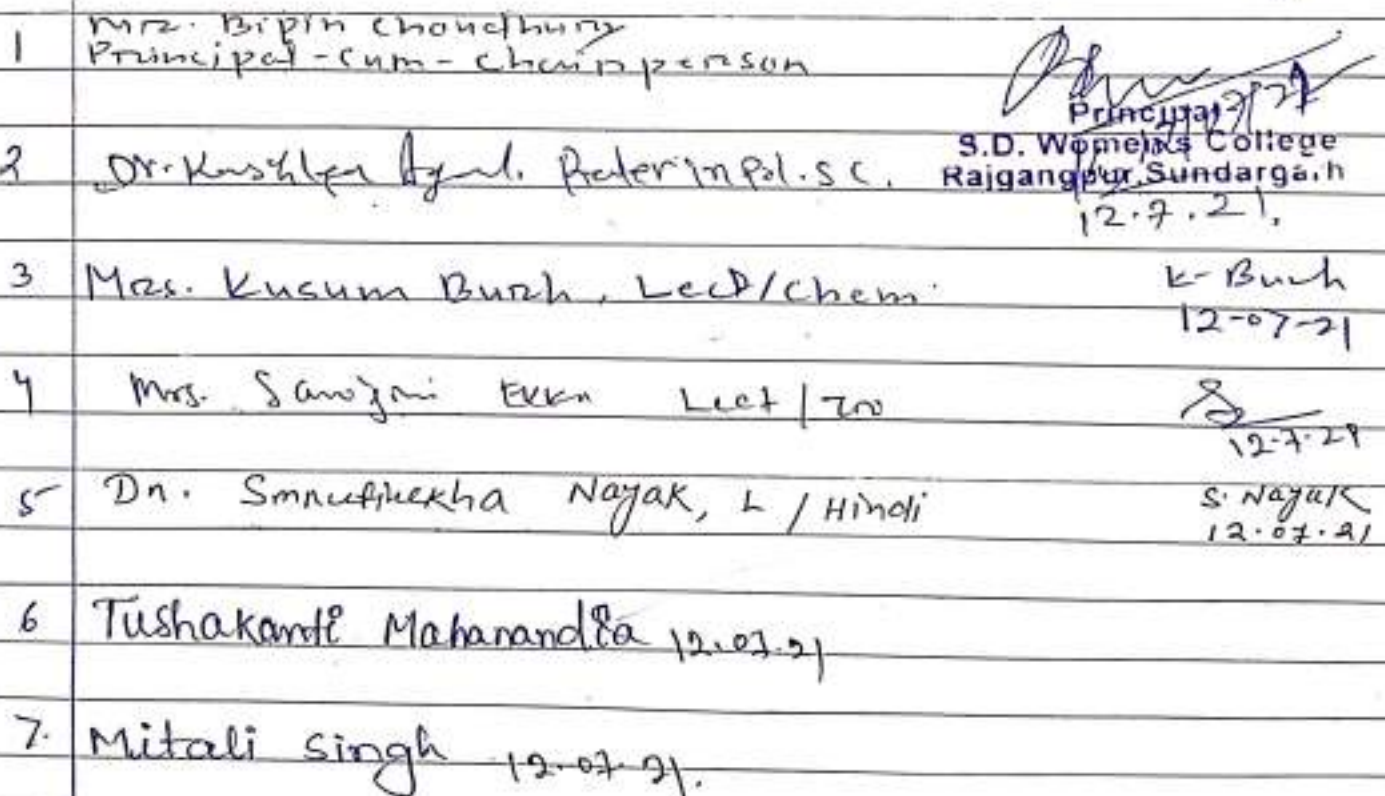 1 Mrs. Bipin Choudhury
Principal-cum-chairperson
Principal
S.D. Women's College
Rajgangpur, Sundargarh
12.7.21.
2 Dr. in Pol. Sc.
3 Mrs. Kusum Burh, Lect/Chem.
K-Burh
12-07-21
4 Mrs. Sarojini Ekka Lect/Zoo
12-7-21
5 Dr. Smrutirekha Nayak, L/Hindi
S. Nayak
12.07.21
6 Tushakanti Mahanandia 12.07.21
7. Mitali Singh 12.07.21.